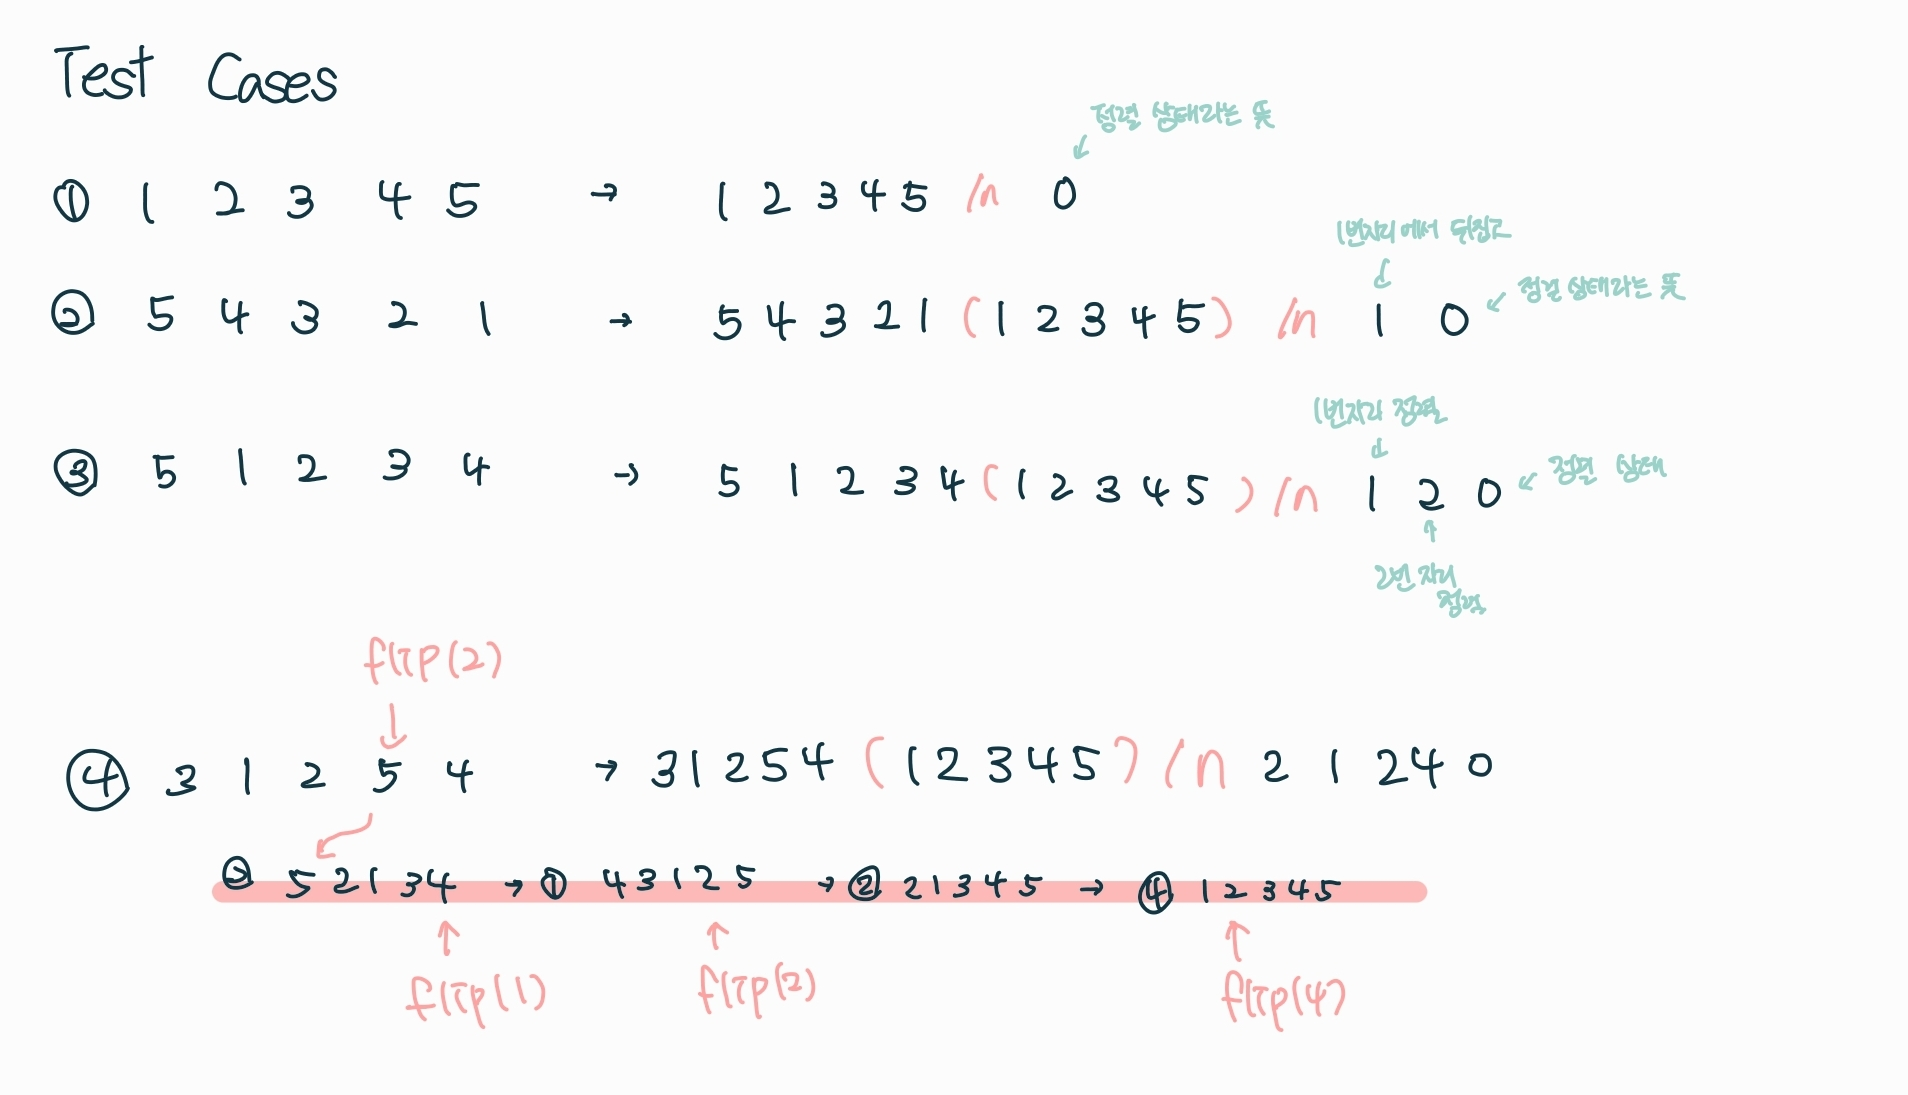 Test Cases
정렬 상태라는 뜻
① 1 2 3 4 5 → 1 2 3 4 5 /n 0
1번자리에서 뒤집고
② 5 4 3 2 1 → 5 4 3 2 1 (1 2 3 4 5) /n 1 0
정렬 상태라는 뜻
1번자리 정렬
③ 5 1 2 3 4 → 5 1 2 3 4 (1 2 3 4 5) /n 1 2 0
정렬 상태
2번 자리
정렬
flip(2)
④ 3 1 2 5 4 → 3 1 2 5 4 (1 2 3 4 5) /n 2 1 2 4 0
② 5 2 1 3 4 → ① 4 3 1 2 5 → ② 2 1 3 4 5 → ④ 1 2 3 4 5
flip(1) flip(2) flip(4)